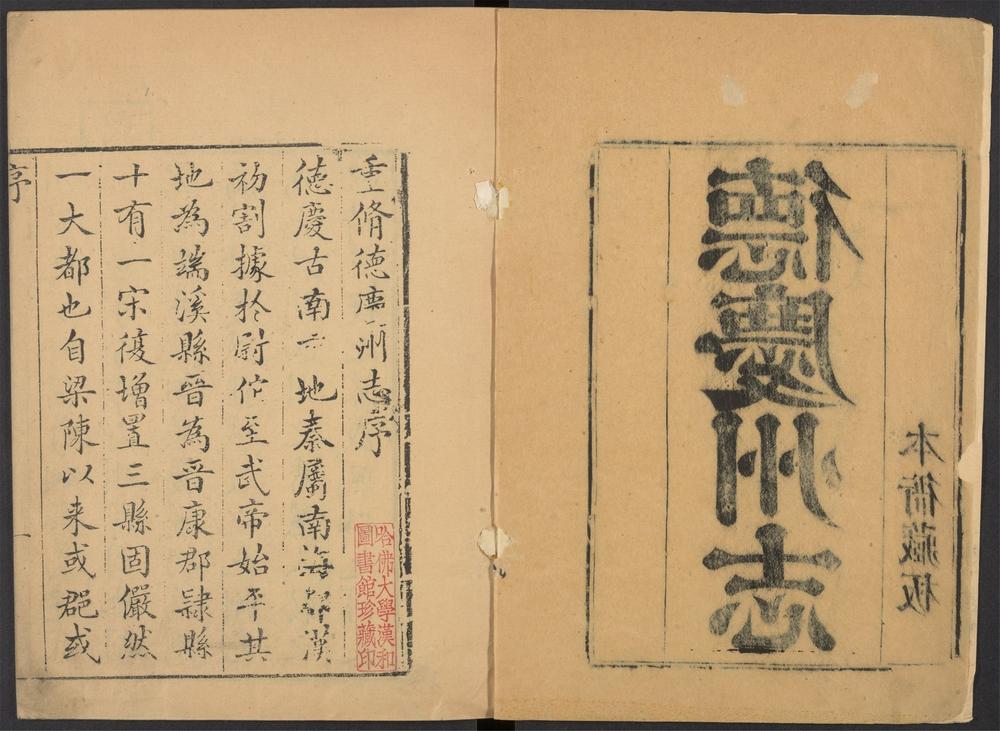 本衙藏板
德慶州志
重脩德慶州志序
德慶古南地秦屬南海郡漢
初割據於尉佗至武帝始平其
地為端溪縣晉為晉康郡隷縣
十有一宋復増置三縣固儼然
一大都也自梁陳以来或郡或
序
一
哈佛大學漢和
圖書館珍藏印